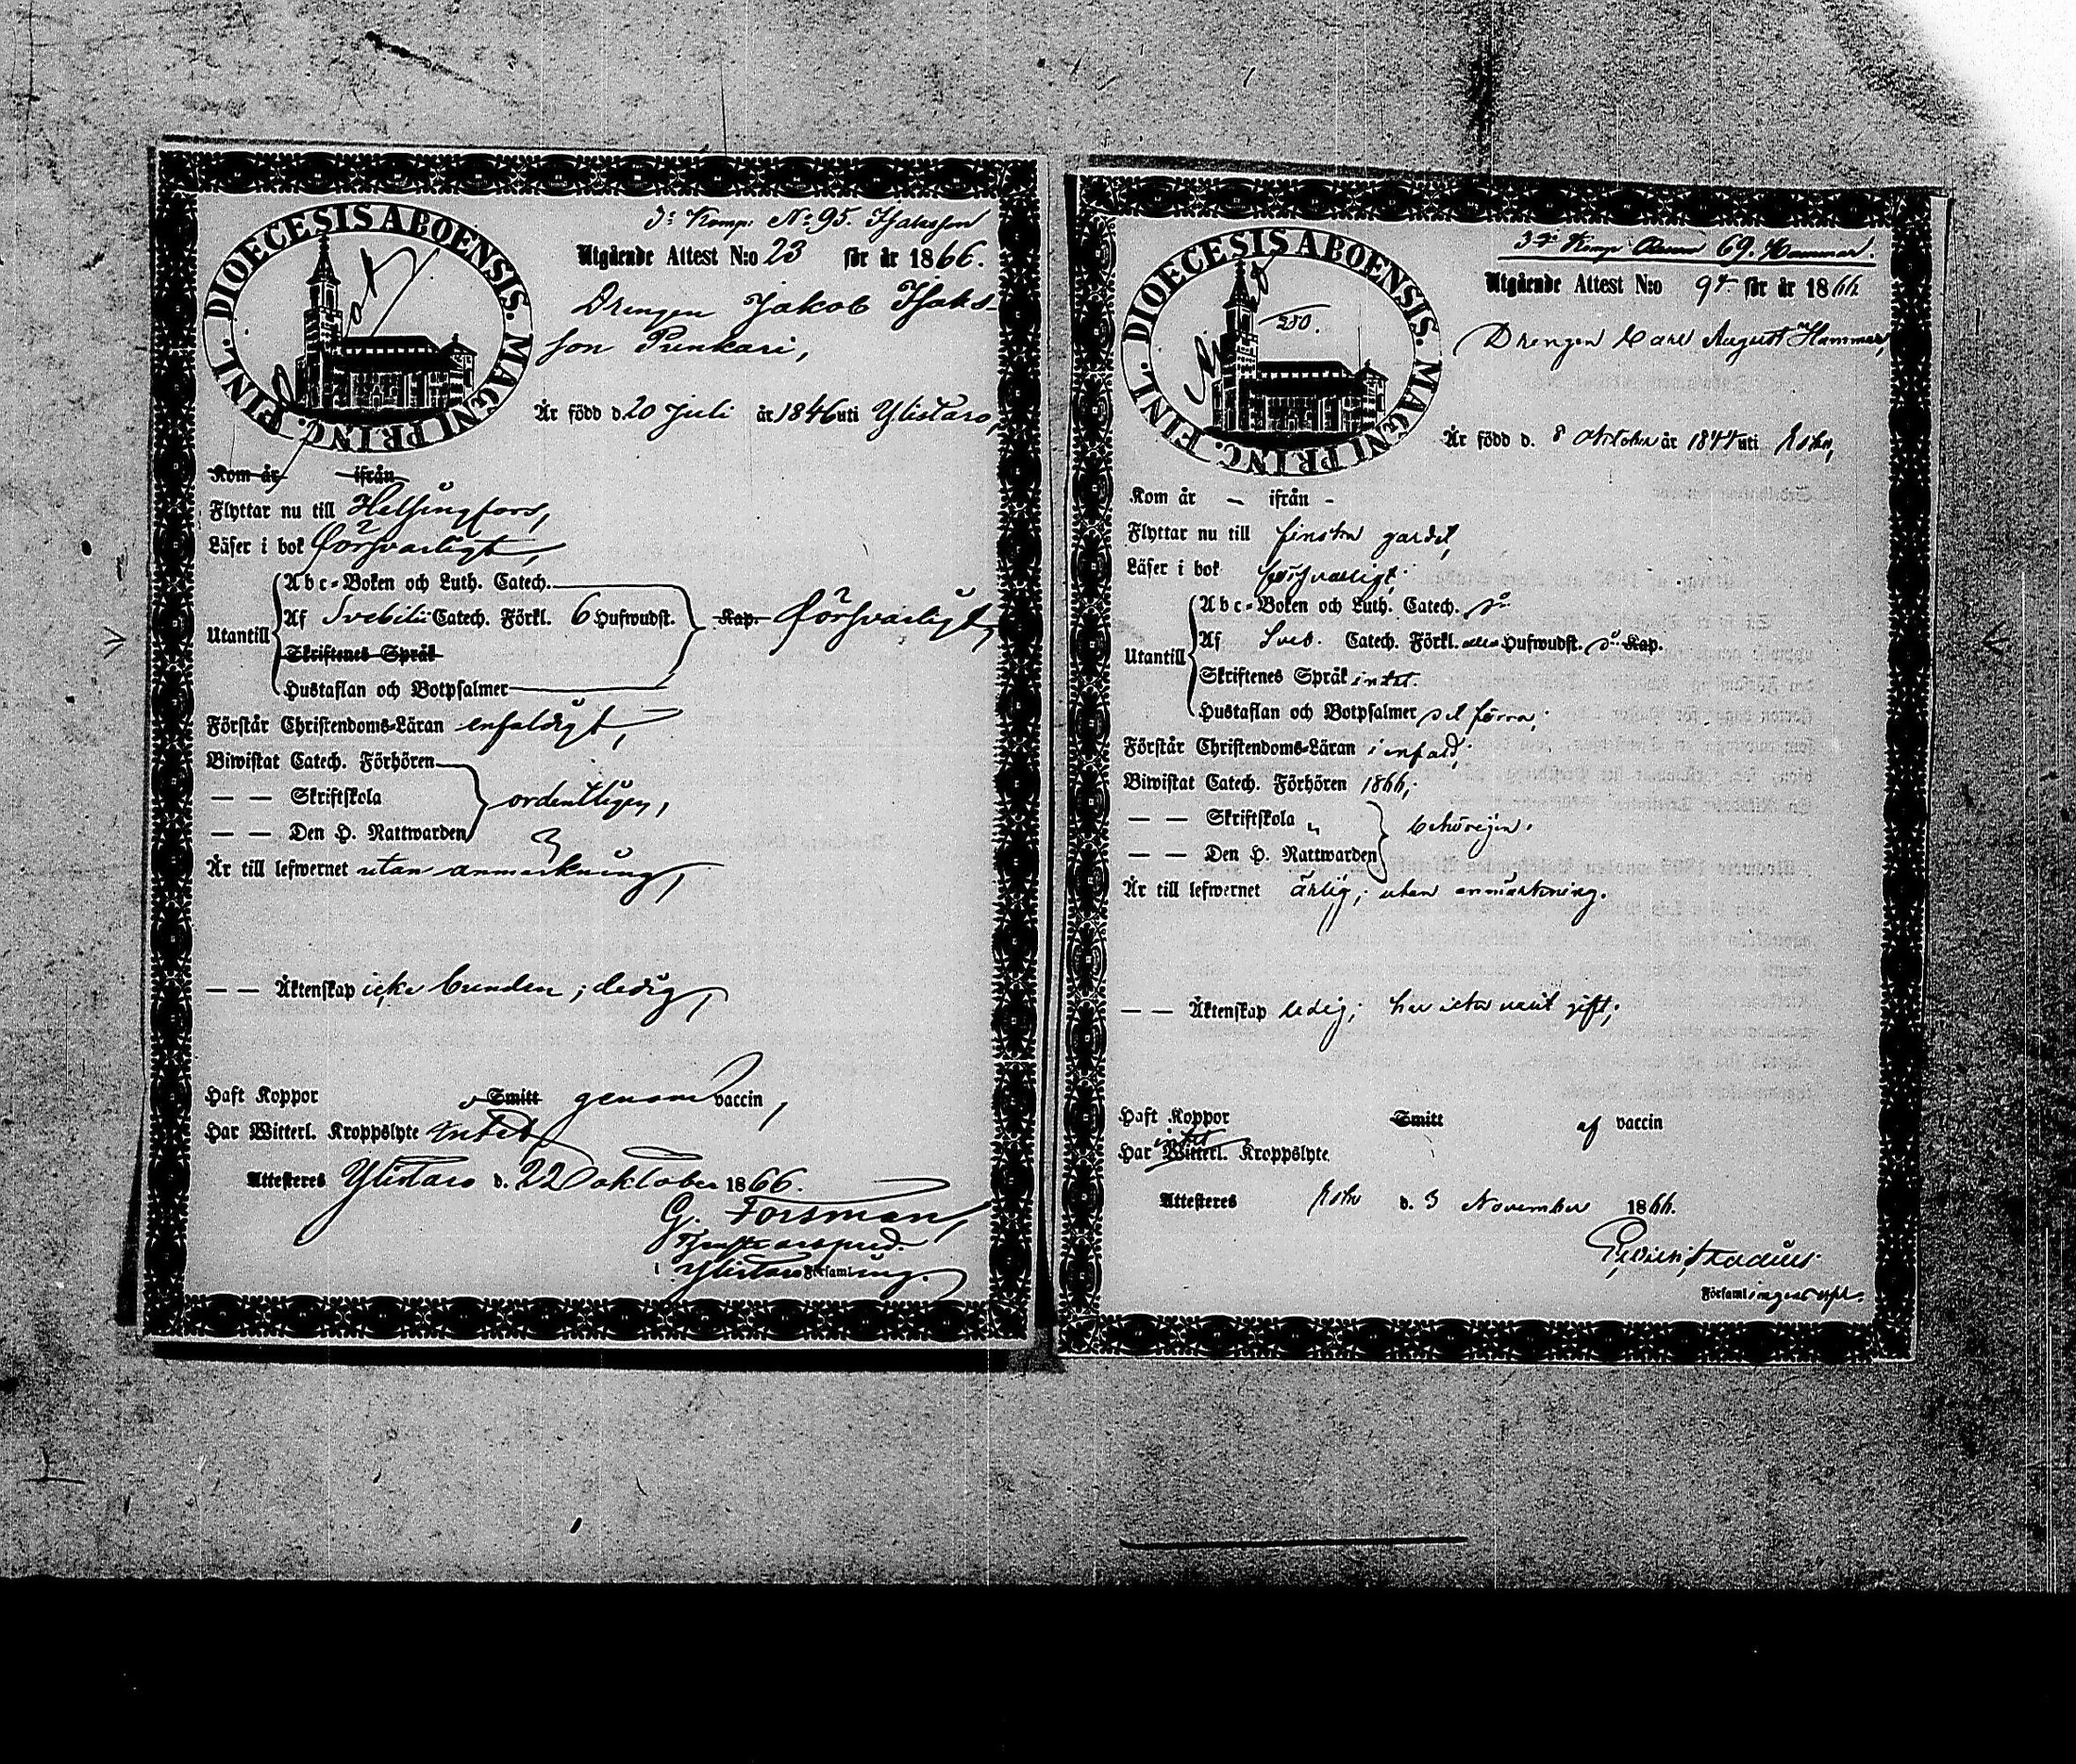 3:e Komp: No 95. Isaksson
DIOECESIS ABOENSIS. MAGNI PRINC. FINL.
Utgående Attest N:o 23 för år 1866.
Drengen Jakob Isaks-
son Punkari,
Är född d 20 Juli år 1846 uti Ylistaro,
Kom år ifrån
Flyttar nu till Helsingfors,
Läser i bok försvarligt,
Utantill
Abc-Boken och Luth. Catech.
Af Svebilii Catech. Förkl. 6 Hufwudst. Kap. försvarligt,
Skriftenes Språk
Hustaflan och Botpsalmer
Förstår Christendoms-Läran enfaldigt,
Biwistat Catech. Förhören
— — Skriftskola ordentligen,
— — Den H. Nattwarden
Är till lefwernet utan anmärkning,
— — Äktenskap icke bunden; ledig,
Haft Koppor Smitt genom vaccin,
Har Witterl. Kroppslyte intet
Attesteras Ylistaro d. 22 oktober 1866.
G. Forsman,
i Ylistaro Församling.
3:e Komp 69. Hammar.
DIOECESIS ABOENSIS. MAGNI PRINC. FINL.
250.
Utgående Attest N:o 97. för år 1866
Drengen Carl August Hammar,
Är född d. 8 oktober år 1844 uti Esbo,
Kom år – ifrån –
Flyttar nu till finska gardet,
Läser i bok försvarligt.
Utantill
Abc-Boken och Luth. Catech.
Af Sveb. Catech. Förkl. alla Hufwudst. Kap.
Skriftenes Språk intet.
Hustaflan och Botpsalmer det förra;
Förstår Christendoms-Läran i enfald;
Biwistat Catech. Förhören 1866,
— — Skriftskola behörigen.
— — Den H. Nattwarden
Är till lefwernet ärlig; utan anmärkning.
— — Äktenskap ledig; har icke varit gift;
Haft Koppor Smitt af vaccin
Har intet Witterl. Kroppslyte
Attesteras Esbo d. 3 November 1866.
Församlingens